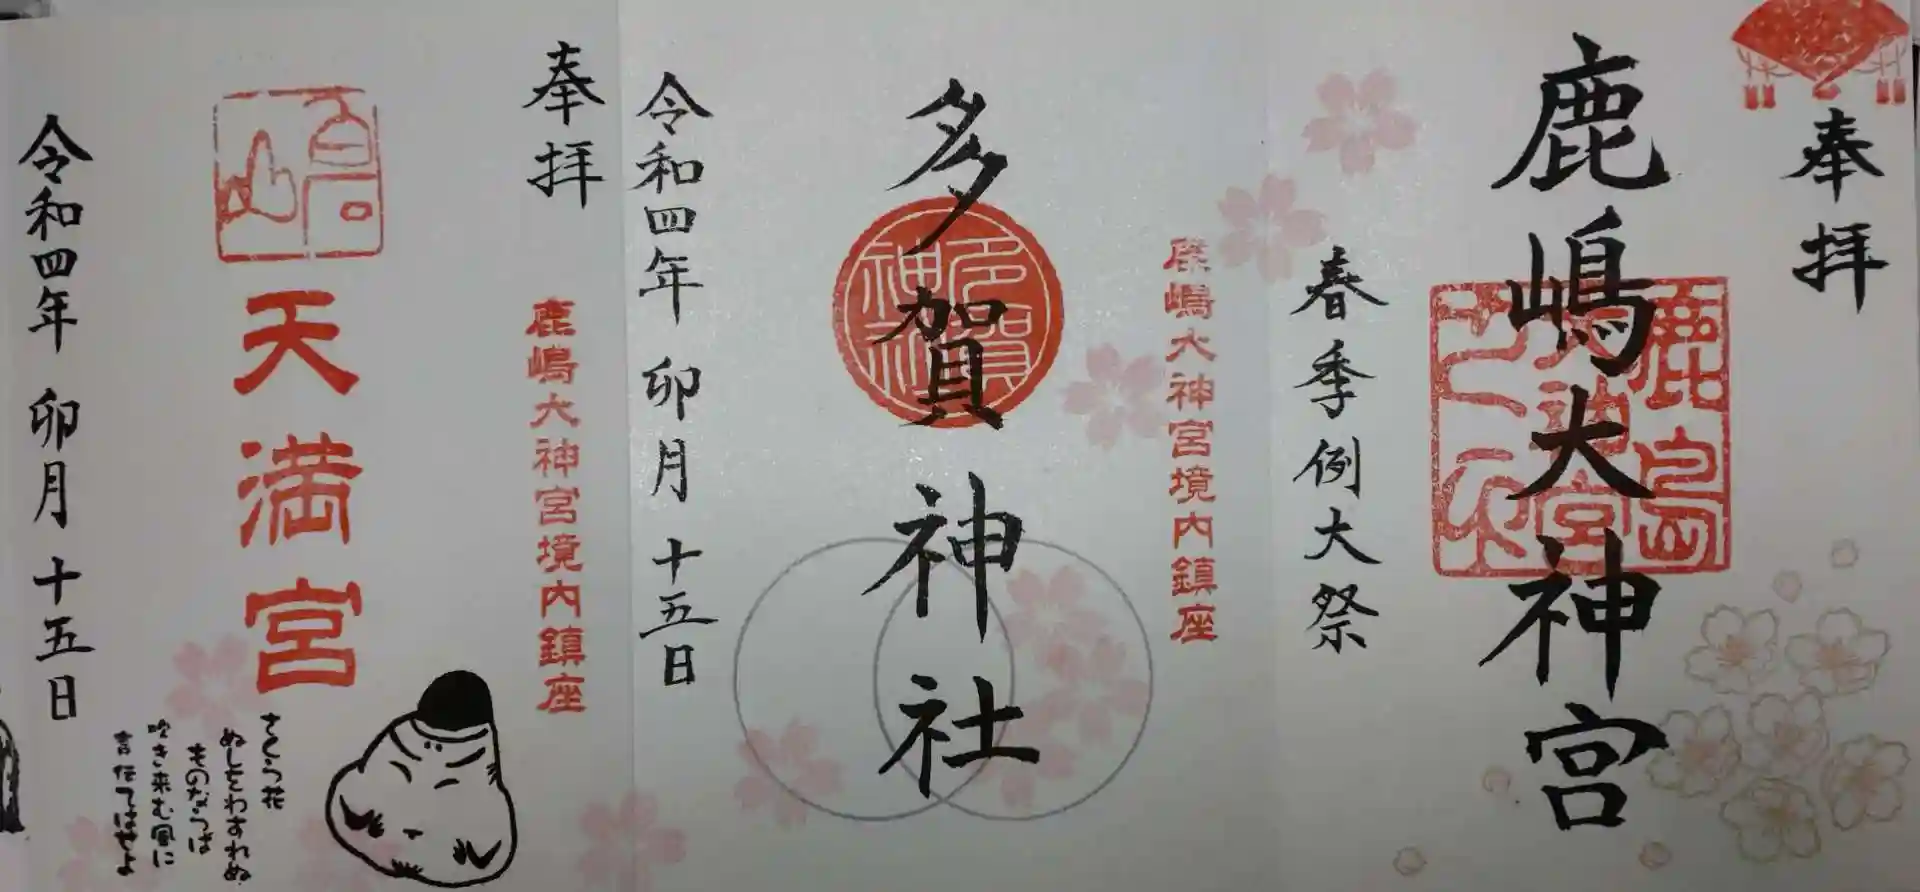 奉拝
鹿嶋大神宮
春季例大祭
鹿嶋大神宮境内鎮座
多賀神社
多賀神社
令和四年 卯月 十五日
奉拝
鹿嶋大神宮境内鎮座
天満宮
さくら花
ぬしをわすれぬ
ものならば
吹き来む風に
言伝てはせよ
令和四年 卯月 十五日